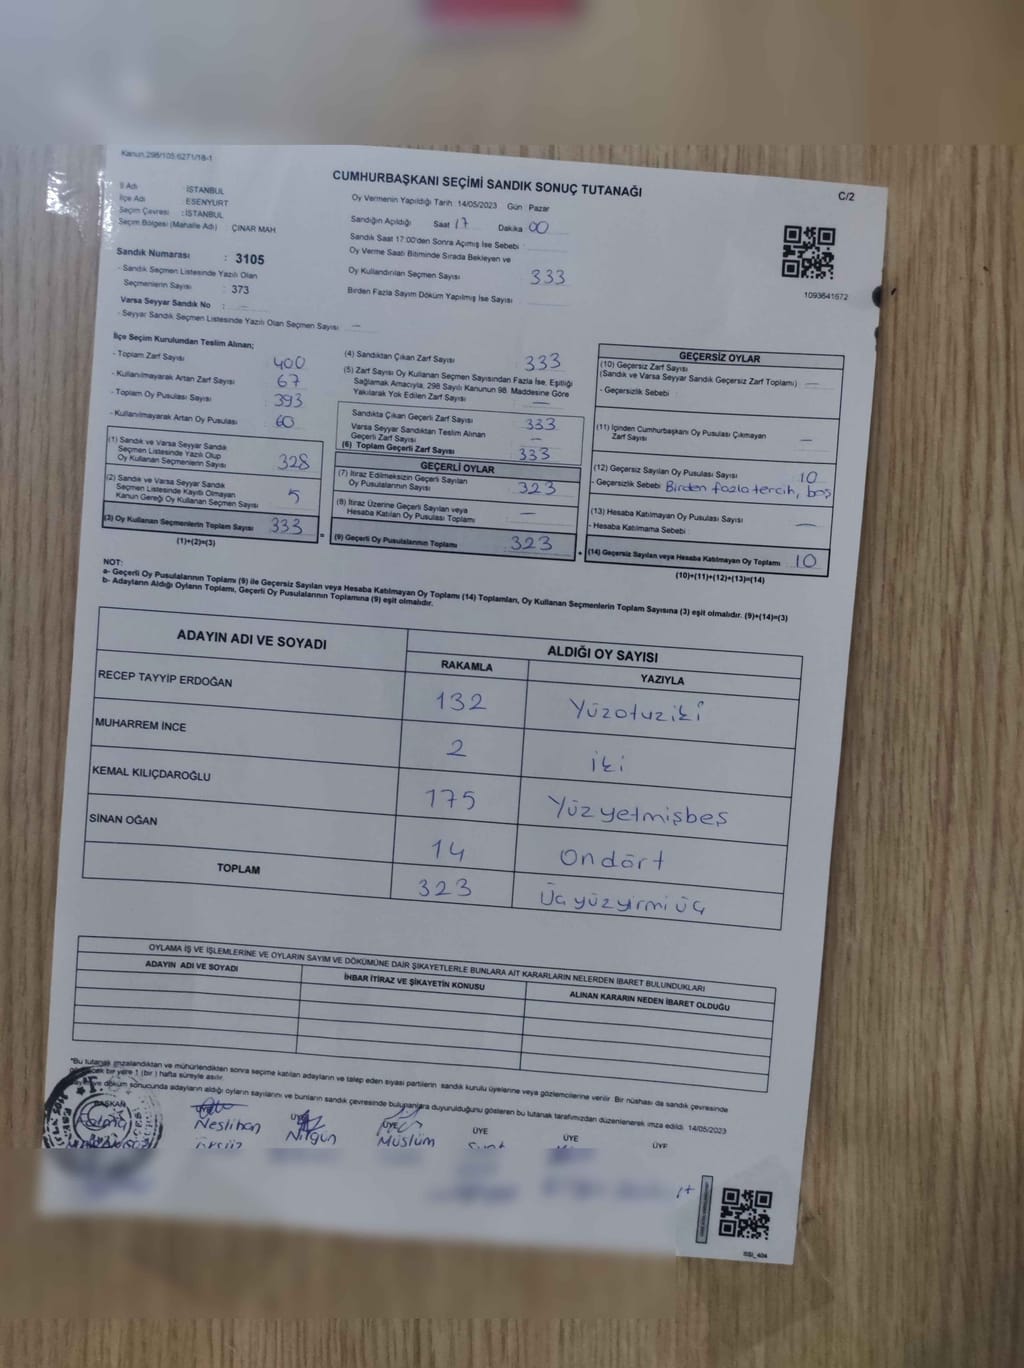 Kanun,298/105;6271/18-1
CUMHURBAŞKANI SEÇİMİ SANDIK SONUÇ TUTANAĞI
C/2
İl Adı : İSTANBUL
İlçe Adı : ESENYURT
Seçim Çevresi : İSTANBUL
Seçim Bölgesi (Mahalle Adı) : ÇINAR MAH
Sandık Numarası : 3105
- Sandık Seçmen Listesinde Yazılı Olan
Seçmenlerin Sayısı : 373
Varsa Seyyar Sandık No : —
- Seyyar Sandık Seçmen Listesinde Yazılı Olan Seçmen Sayısı —
Oy Vermenin Yapıldığı Tarih : 14/05/2023 Gün : Pazar
Sandığın Açıldığı Saat 17 Dakika 00
Sandık Saat 17:00'den Sonra Açımış İse Sebebi :
Oy Verme Saati Bitiminde Sırada Bekleyen ve
Oy Kullandırılan Seçmen Sayısı 333
Birden Fazla Sayım Döküm Yapılmış İse Sayısı
1093641672
İlçe Seçim Kurulundan Teslim Alınan;
- Toplam Zarf Sayısı 400
- Kullanılmayarak Artan Zarf Sayısı 67
- Toplam Oy Pusulası Sayısı 393
- Kullanılmayarak Artan Oy Pusulası 60
(1) Sandık ve Varsa Seyyar Sandık
Seçmen Listesinde Yazılı Olup
Oy Kullanan Seçmenlerin Sayısı 328
(2) Sandık ve Varsa Seyyar Sandık
Seçmen Listesinde Kayıtlı Olmayan
Kanun Gereği Oy Kullanan Seçmen Sayısı 5
(3) Oy Kullanan Seçmenlerin Toplam Sayısı 333
(1)+(2)=(3)
(4) Sandıktan Çıkan Zarf Sayısı 333
(5) Zarf Sayısı Oy Kullanan Seçmen Sayısından Fazla İse, Eşitliği
Sağlamak Amacıyla, 298 Sayılı Kanunun 98. Maddesine Göre
Yakılarak Yok Edilen Zarf Sayısı —
Sandıkta Çıkan Geçerli Zarf Sayısı 333
Varsa Seyyar Sandıktan Teslim Alınan
Geçerli Zarf Sayısı —
(6) Toplam Geçerli Zarf Sayısı 333
GEÇERLİ OYLAR
(7) İtiraz Edilmeksizin Geçerli Sayılan
Oy Pusulalarının Sayısı 323
(8) İtiraz Üzerine Geçerli Sayılan veya
Hesaba Katılan Oy Pusulası Toplamı —
(9) Geçerli Oy Pusulalarının Toplamı 323
GEÇERSİZ OYLAR
(10) Geçersiz Zarf Sayısı
(Sandık ve Varsa Seyyar Sandık Geçersiz Zarf Toplamı) —
- Geçersizlik Sebebi :
(11) İçinden Cumhurbaşkanı Oy Pusulası Çıkmayan
Zarf Sayısı —
(12) Geçersiz Sayılan Oy Pusulası Sayısı 10
- Geçersizlik Sebebi Birden fazla tercih, boş
(13) Hesaba Katılmayan Oy Pusulası Sayısı —
- Hesaba Katılmama Sebebi :
(14) Geçersiz Sayılan veya Hesaba Katılmayan Oy Toplamı 10
(10)+(11)+(12)+(13)=(14)
NOT:
a- Geçerli Oy Pusulalarının Toplamı (9) ile Geçersiz Sayılan veya Hesaba Katılmayan Oy Toplamı (14) Toplamları, Oy Kullanan Seçmenlerin Toplam Sayısına (3) eşit olmalıdır. (9)+(14)=(3)
b- Adayların Aldığı Oyların Toplamı, Geçerli Oy Pusulalarının Toplamına (9) eşit olmalıdır.
ADAYIN ADI VE SOYADI
ALDIĞI OY SAYISI
RAKAMLA YAZIYLA
RECEP TAYYİP ERDOĞAN 132 Yüzotuziki
MUHARREM İNCE 2 iki
KEMAL KILIÇDAROĞLU 175 Yüzyetmişbeş
SİNAN OĞAN 14 Ondört
TOPLAM 323 Üçyüzyirmiüç
OYLAMA İŞ VE İŞLEMLERİNE VE OYLARIN SAYIM VE DÖKÜMÜNE DAİR ŞİKAYETLERLE BUNLARA AİT KARARLARIN NELERDEN İBARET BULUNDUKLARI
ADAYIN ADI VE SOYADI İHBAR İTİRAZ VE ŞİKAYETİN KONUSU ALINAN KARARIN NEDEN İBARET OLDUĞU
*Bu tutanak imzalandıktan ve mühürlendikten sonra seçime katılan adayların ve talep eden siyasi partilerin sandık kurulu üyelerine veya gözlemcilerine verilir. Bir nüshası da sandık çevresinde
bir yere 1 (bir) hafta süreyle asılır.
döküm sonucunda adayların aldığı oyların sayılarını ve bunların sandık çevresinde bulunanlara duyurulduğunu gösteren bu tutanak tarafımızdan düzenlenerek imza edildi. 14/05/2023
BAŞKAN ÜYE ÜYE ÜYE ÜYE ÜYE
Neslihan Nilgün Müslüm